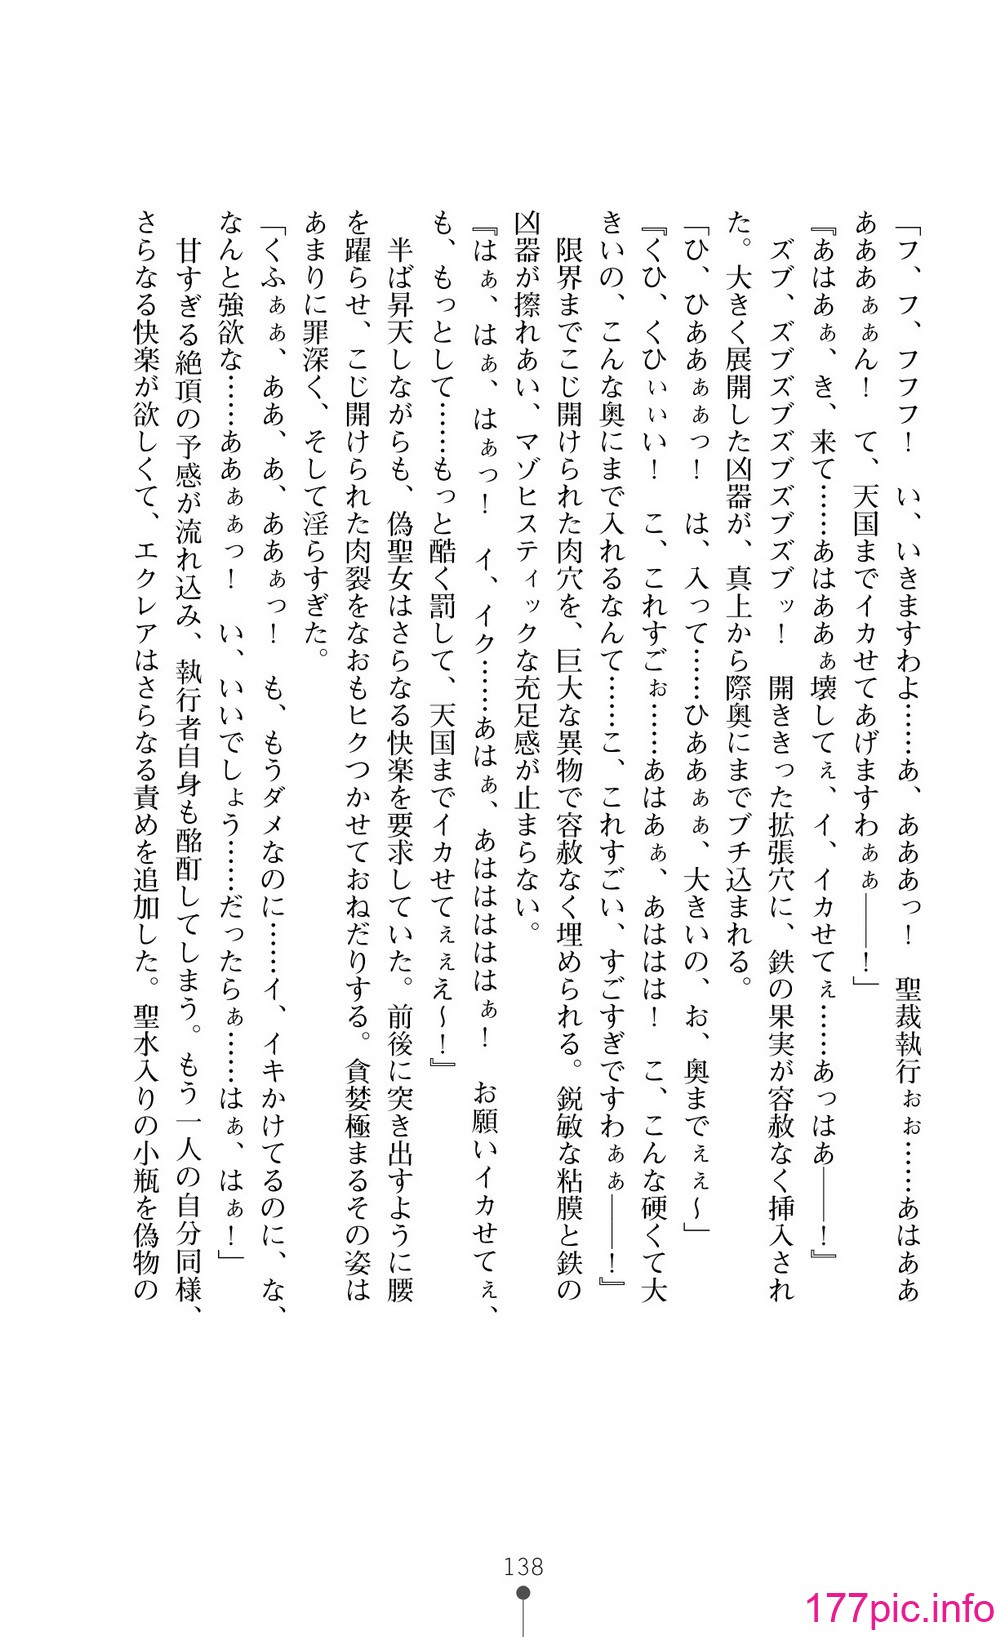 「フ、フ、フフフ！　い、いきますわよ……あ、あああっ！　聖裁執行ぉぉ……あはああ
あああぁぁん！　て、天国までイカせてあげますわぁぁ――！」
『あはあぁ、き、来て……あはああぁ壊してぇ、イ、イカせてぇ……あっはあ――！』
　ズブ、ズブズブズブズブズブッ！　開ききった拡張穴に、鉄の果実が容赦なく挿入され
た。大きく展開した凶器が、真上から際奥にまでブチ込まれる。
「ひ、ひああぁぁっ！　は、入って……ひああぁぁ、大きいの、お、奥までぇぇ～」
『くひ、くひぃぃい！　こ、これすごぉ……あはあぁ、あははは！　こ、こんな硬くて大
きいの、こんな奥にまで入れるなんて……こ、これすごい、すごすぎですわぁぁ――！』
　限界までこじ開けられた肉穴を、巨大な異物で容赦なく埋められる。鋭敏な粘膜と鉄の
凶器が擦れあい、マゾヒスティックな充足感が止まらない。
『はぁ、はぁ、はぁっ！　イ、イク……あはぁ、あはははははぁ！　お願いイカせてぇ、
も、もっとして……もっと酷く罰して、天国までイカせてぇぇえ～！』
　半ば昇天しながらも、偽聖女はさらなる快楽を要求していた。前後に突き出すように腰
を躍らせ、こじ開けられた肉裂をなおもヒクつかせておねだりする。貪婪極まるその姿は
あまりに罪深く、そして淫らすぎた。
「くふぁぁ、ああ、あ、ああぁっ！　も、もうダメなのに……イ、イキかけてるのに、な、
なんと強欲な……ああぁぁっ！　い、いいでしょう……だったらぁ……はぁ、はぁ！」
　甘すぎる絶頂の予感が流れ込み、執行者自身も酩酊してしまう。もう一人の自分同様、
さらなる快楽が欲しくて、エクレアはさらなる責めを追加した。聖水入りの小瓶を偽物の
138
177pic.info